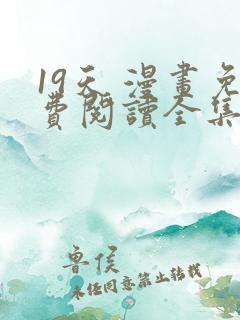 19天 漫畫免
費閱讀全集
鲁侯
未经同意禁止转载